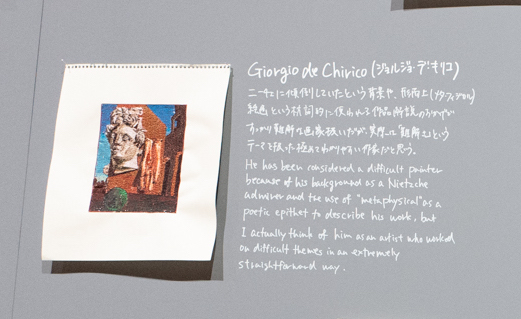 Giorgio de Chirico (ジョルジョ・デ・キリコ)
ニーチェに傾倒していたという背景や、形而上(メタフィジカル)
絵画という枕詞的に使われる作品解説のおかげで
すっかり難解な画家扱いだが、実際は「難解さ」という
テーマを扱った極めてわかりやすい作家だと思う。
He has been considered a difficult painter
because of his background as a Nietzche
admirer and the use of "metaphysical" as a
poetic epithet to describe his work, but
I actually think of him as an artist who worked
on difficult themes in an extremely
straightforward way.